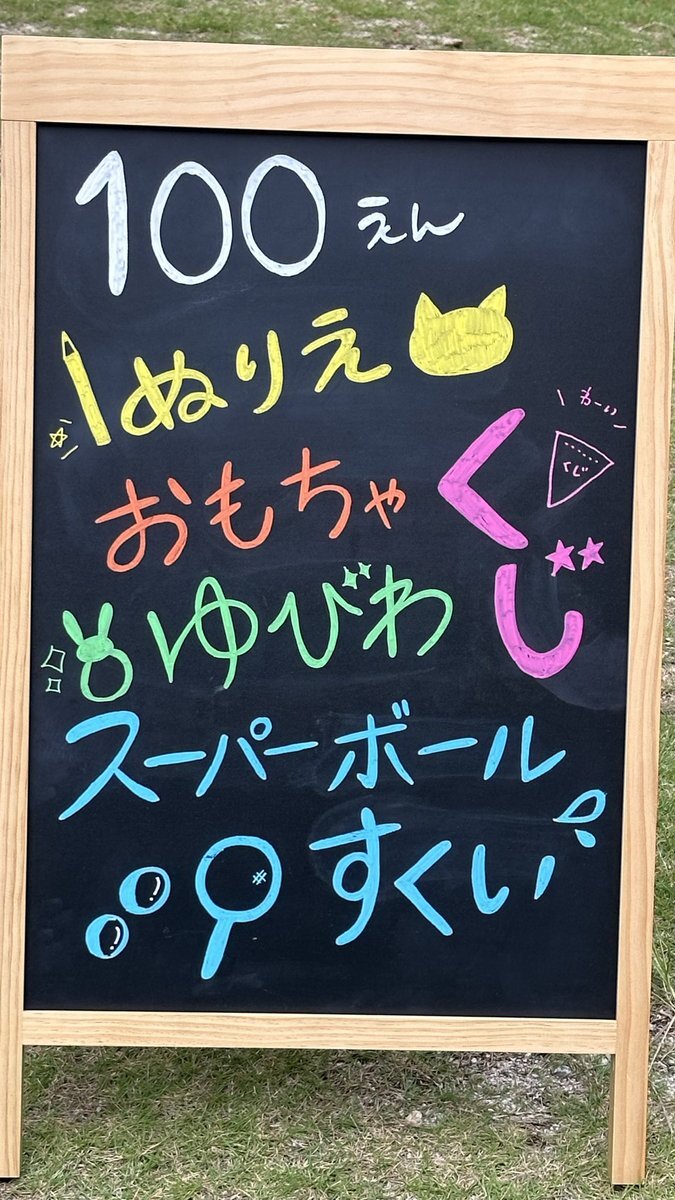 100 えん
ぬりえ
おもちゃ
ゆびわ
くじ
くじ
スーパーボール
すくい